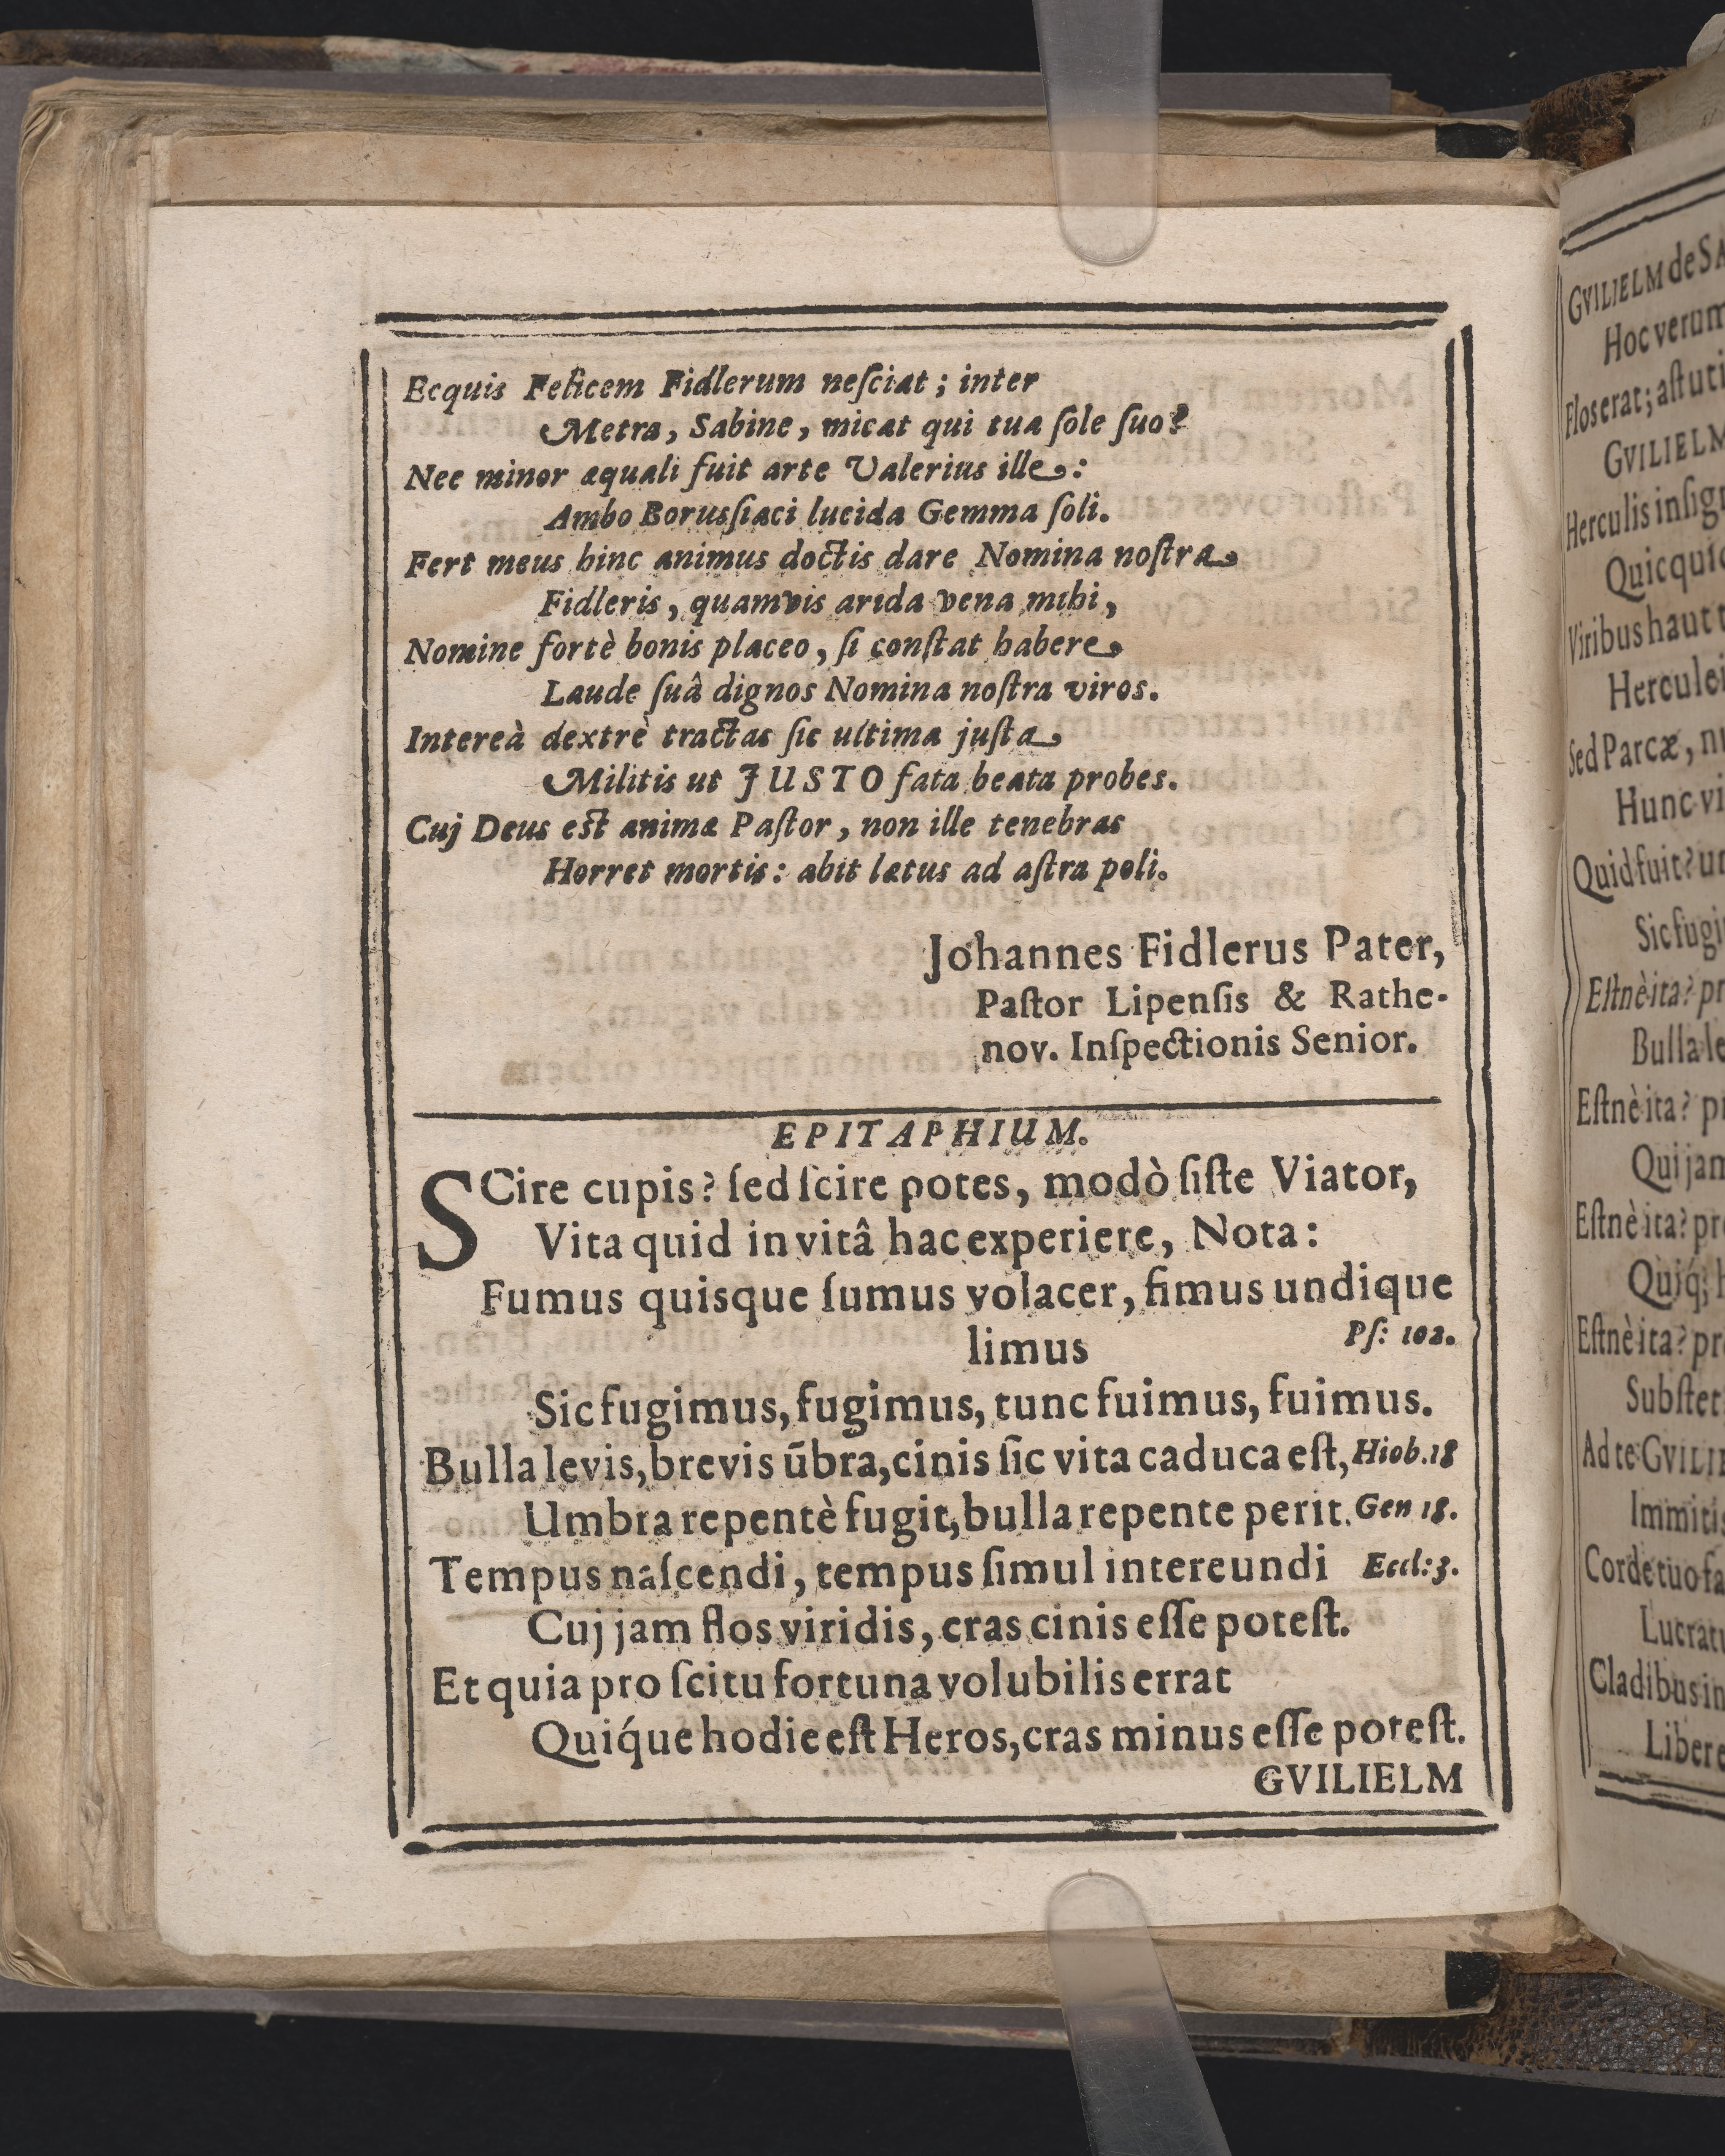 Ecquis Felicem Fidlerum neſciat; inter
Metra, Sabine, micat qui tua ſole ſuo?
Nec minor æquali fuit arte Valerius ille:
Ambo Borusſiaci lucida Gemma ſoli.
Fert meus hinc animus doctis dare Nomina noſtra
Fidleris, quamvis arida vena mihi,
Nomine fortè bonis placeo, ſi conſtat habere
Laude ſuâ dignos Nomina noſtra viros.
Intereà dextrè tractas ſic ultima juſta
Militis ut JUSTO fata beata probes.
Cuj Deus est animæ Paſtor, non ille tenebras
Horret mortis: abit lætus ad aſtra poli.
Johannes Fidlerus Pater,
Paſtor Lipenſis & Rathe-
nov. Inſpectionis Senior.
EPITAPHIUM.
SCire cupis? ſed ſcire potes, modò ſiſte Viator,
Vita quid in vitâ hac experiere, Nota:
Fumus quisque ſumus volacer, fimus undique
limus Pſ: 102.
Sic fugimus, fugimus, tunc fuimus, fuimus.
Bulla levis, brevis ūbra, cinis ſic vita caduca eſt, Hiob. 18
Umbra repentè fugit, bulla repente perit. Gen 18.
Tempus naſcendi, tempus ſimul intereundi Eccl: 3.
Cuj jam flos viridis, cras cinis eſſe poteſt.
Et quia pro ſcitu fortuna volubilis errat
Quiq́ue hodie eſt Heros, cras minus eſſe poteſt.
GVILIELM
GVILIELM de
Hoc verum
Floserat; aſt uti
GVILIELM
Herculis
Viribus haut
Sed Parcæ,
Hunc
Quid fuit?
Eſtnè ita?
Bulla
Eſtnè ita?
Qui jam
Eſtnè ita?
Quiq́;
Eſtnè ita?
Ad te
Corde tuo
Cladibus